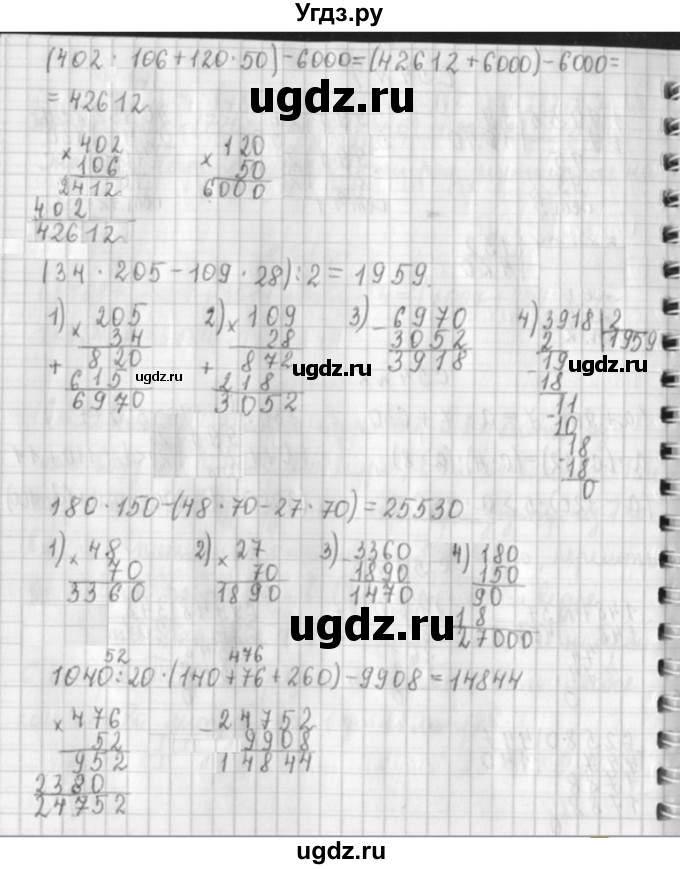 Угдз.ру
(402 · 106+120·50)-6000=(42612+6000)-6000=
=42612
ugdz.ru
× 402
106
2412
402
42612
× 120
50
6000
(34 · 205-109 · 28):2=1959.
1) × 205
34
+ 820
615
6970
2) × 109
28
+ 872
218
3052
3) - 6970
3052
3918
4) 3918 | 2
2 1959
-19
18
-11
10
-18
18
0
ugdz.ru
ugdz.ru
ugdz.ru
180·150-(48·70-27·70)=25530
1) × 48
70
3360
2) × 27
70
1890
3) - 3360
1890
1470
4) 180
150
90
18
27000
ugdz.ru
52 476
1040:20·(140+76+260)-9908=14844
× 476
52
952
2380
24752
- 24752
9908
14844
ugdz.ru